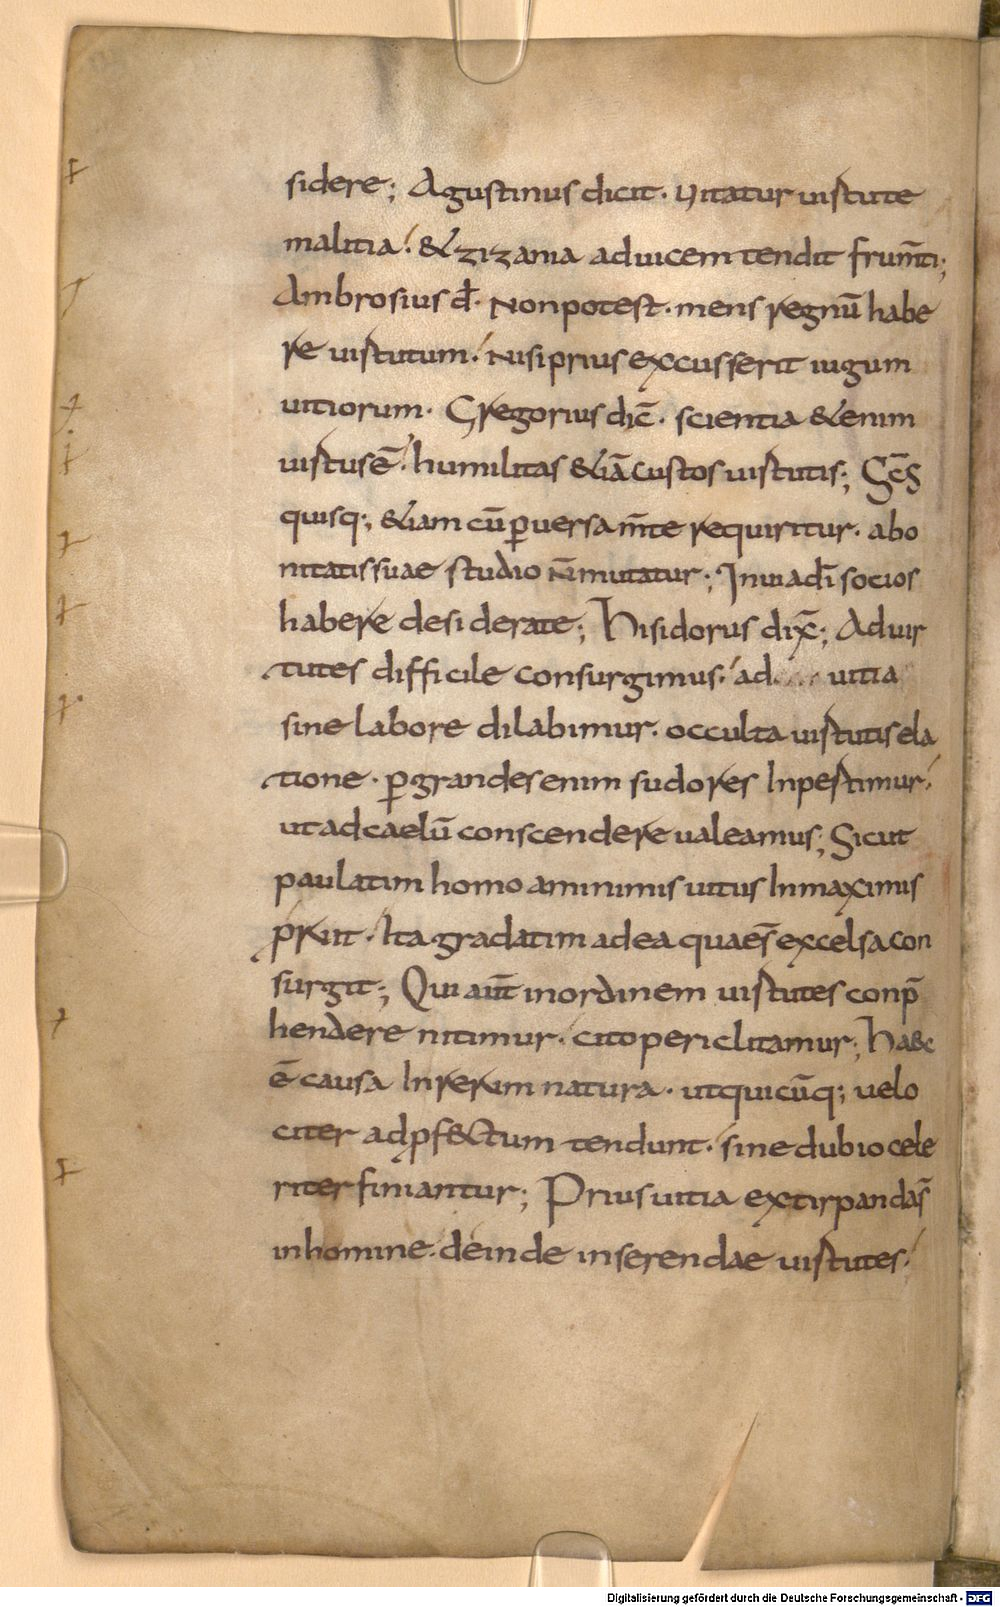 sidere; Agustinus dicit· uitatur uirtute
malitia·' & zizania aduicem tendit frum̄ti;
Ambrosius dt̄· Non potest· mens regnū habe
re uirtutum·' Nisi prius excusserit iugum
uitiorum· Gregorius dic̄· scientia & enim
uirtus ē·' humilitas &iā custos uirtutis; Sc̄s
quisq; &iam cū ꝑuersa m̄te requiritur· a bo
nitatis suae studio n̄ mutatur; In uia dī socios
habere desiderate; Hisidorus dix̄; Ad uir
tutes difficile consurgimus·' ad uitia
sine labore dilabimur· occulta uirtutis ela
tione· ꝑ grandes enim sudores Inpertimur·'
ut ad caelū conscendere ualeamus; Sicut
paulatim homo a minimis uitiis In maximis
ꝓruit· Ita gradatim ad ea quae s̄ excelsa con
surgit; Qui aūt inordinem uirtutes conp̄
hendere nitimur·' cito periclitamur; Haec
ē causa In rerum natura· ut quicūq; uelo
citer ad ꝓf&ctum tendunt·' sine dubio cele
riter finiantur; Prius uitia extirpanda s̄
in homine· deinde inserendae uirtutes·'
Digitalisierung gefördert durch die Deutsche Forschungsgemeinschaft - DFG